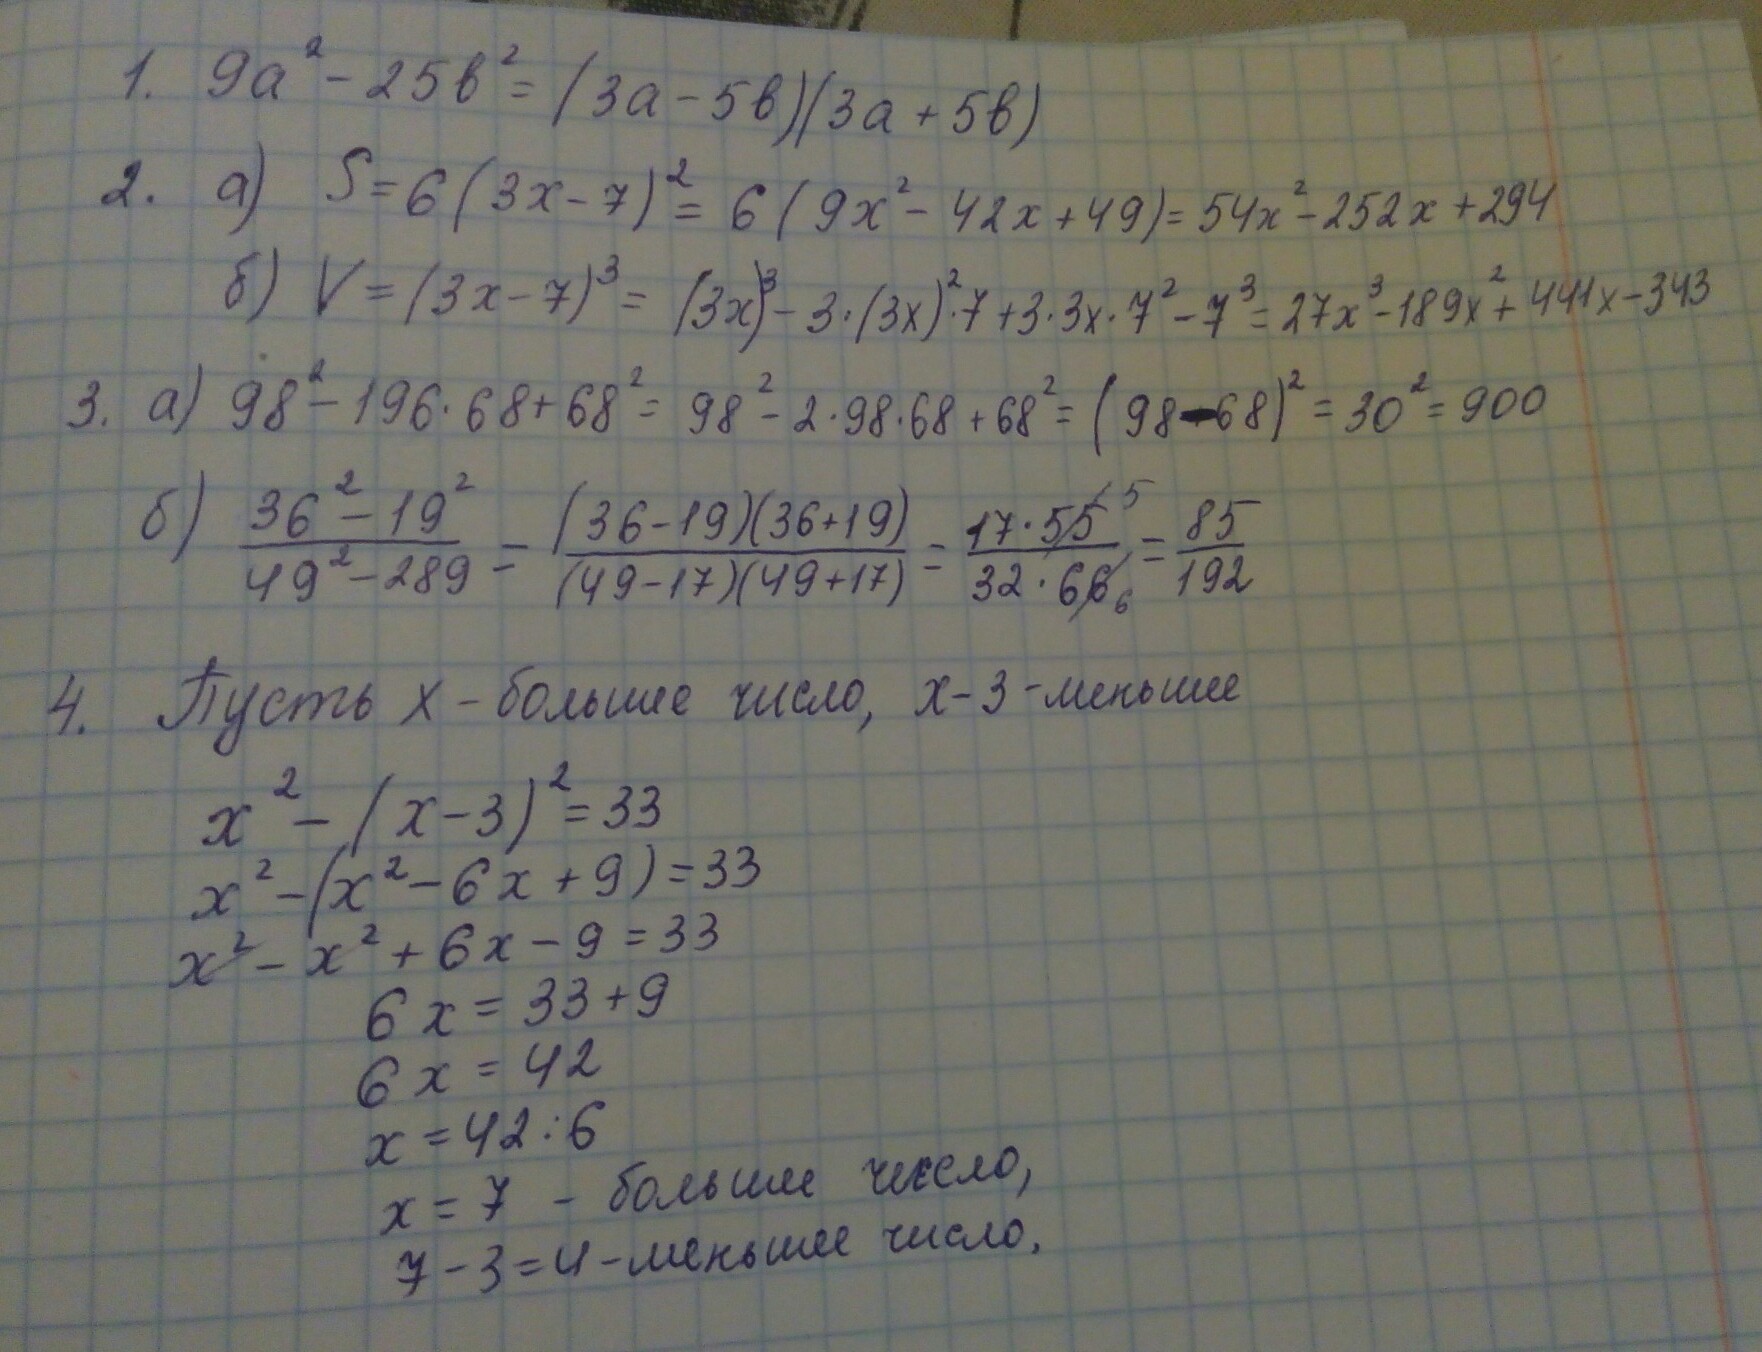 1. 9a² - 25b² = (3a - 5b)(3a + 5b)
2. а) S = 6(3x - 7)² = 6(9x² - 42x + 49) = 54x² - 252x + 294
б) V = (3x - 7)³ = (3x)³ - 3·(3x)²·7 + 3·3x·7² - 7³ = 27x³ - 189x² + 441x - 343
3. а) 98² - 196·68 + 68² = 98² - 2·98·68 + 68² = (98 - 68)² = 30² = 900
б) (36² - 19²)/(49² - 289) = ((36 - 19)(36 + 19))/((49 - 17)(49 + 17)) = (17·55 5)/(32·66 6) = 85/192
4. Пусть x - большее число, x - 3 - меньшее
x² - (x - 3)² = 33
x² - (x² - 6x + 9) = 33
x² - x² + 6x - 9 = 33
6x = 33 + 9
6x = 42
x = 42 : 6
x = 7 - большее число,
7 - 3 = 4 - меньшее число.